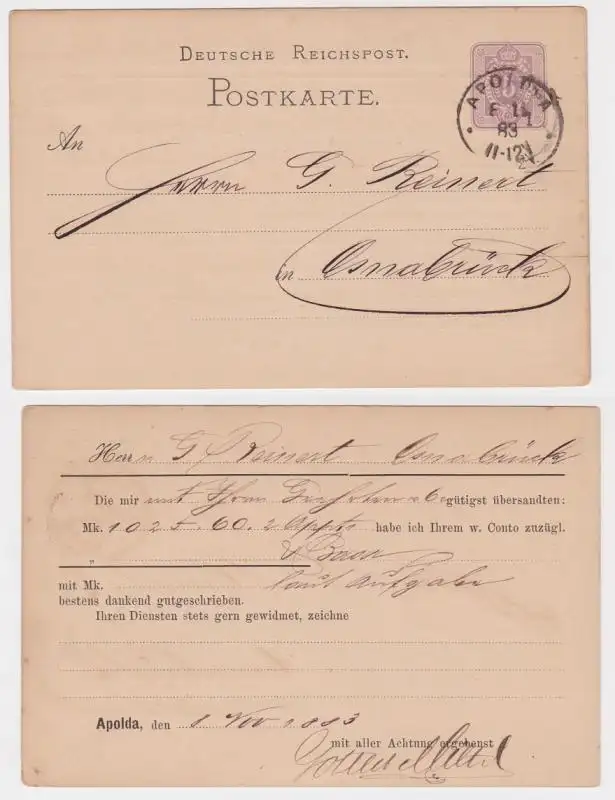 DEUTSCHE REICHSPOST.
POSTKARTE.
APOLDA
83
11-12V
An
Herrn G. Reinert
in Osnabrück
Herrn G. Reinert Osnabrück
Die mir mit Ihrem gütigst übersandten:
Mk. 1025.60. habe ich Ihrem w. Conto zuzügl.
"
mit Mk. laut Aufgabe
bestens dankend gutgeschrieben.
Ihren Diensten stets gern gewidmet, zeichne
Apolda, den 1 Nov 1883
mit aller Achtung ergebenst